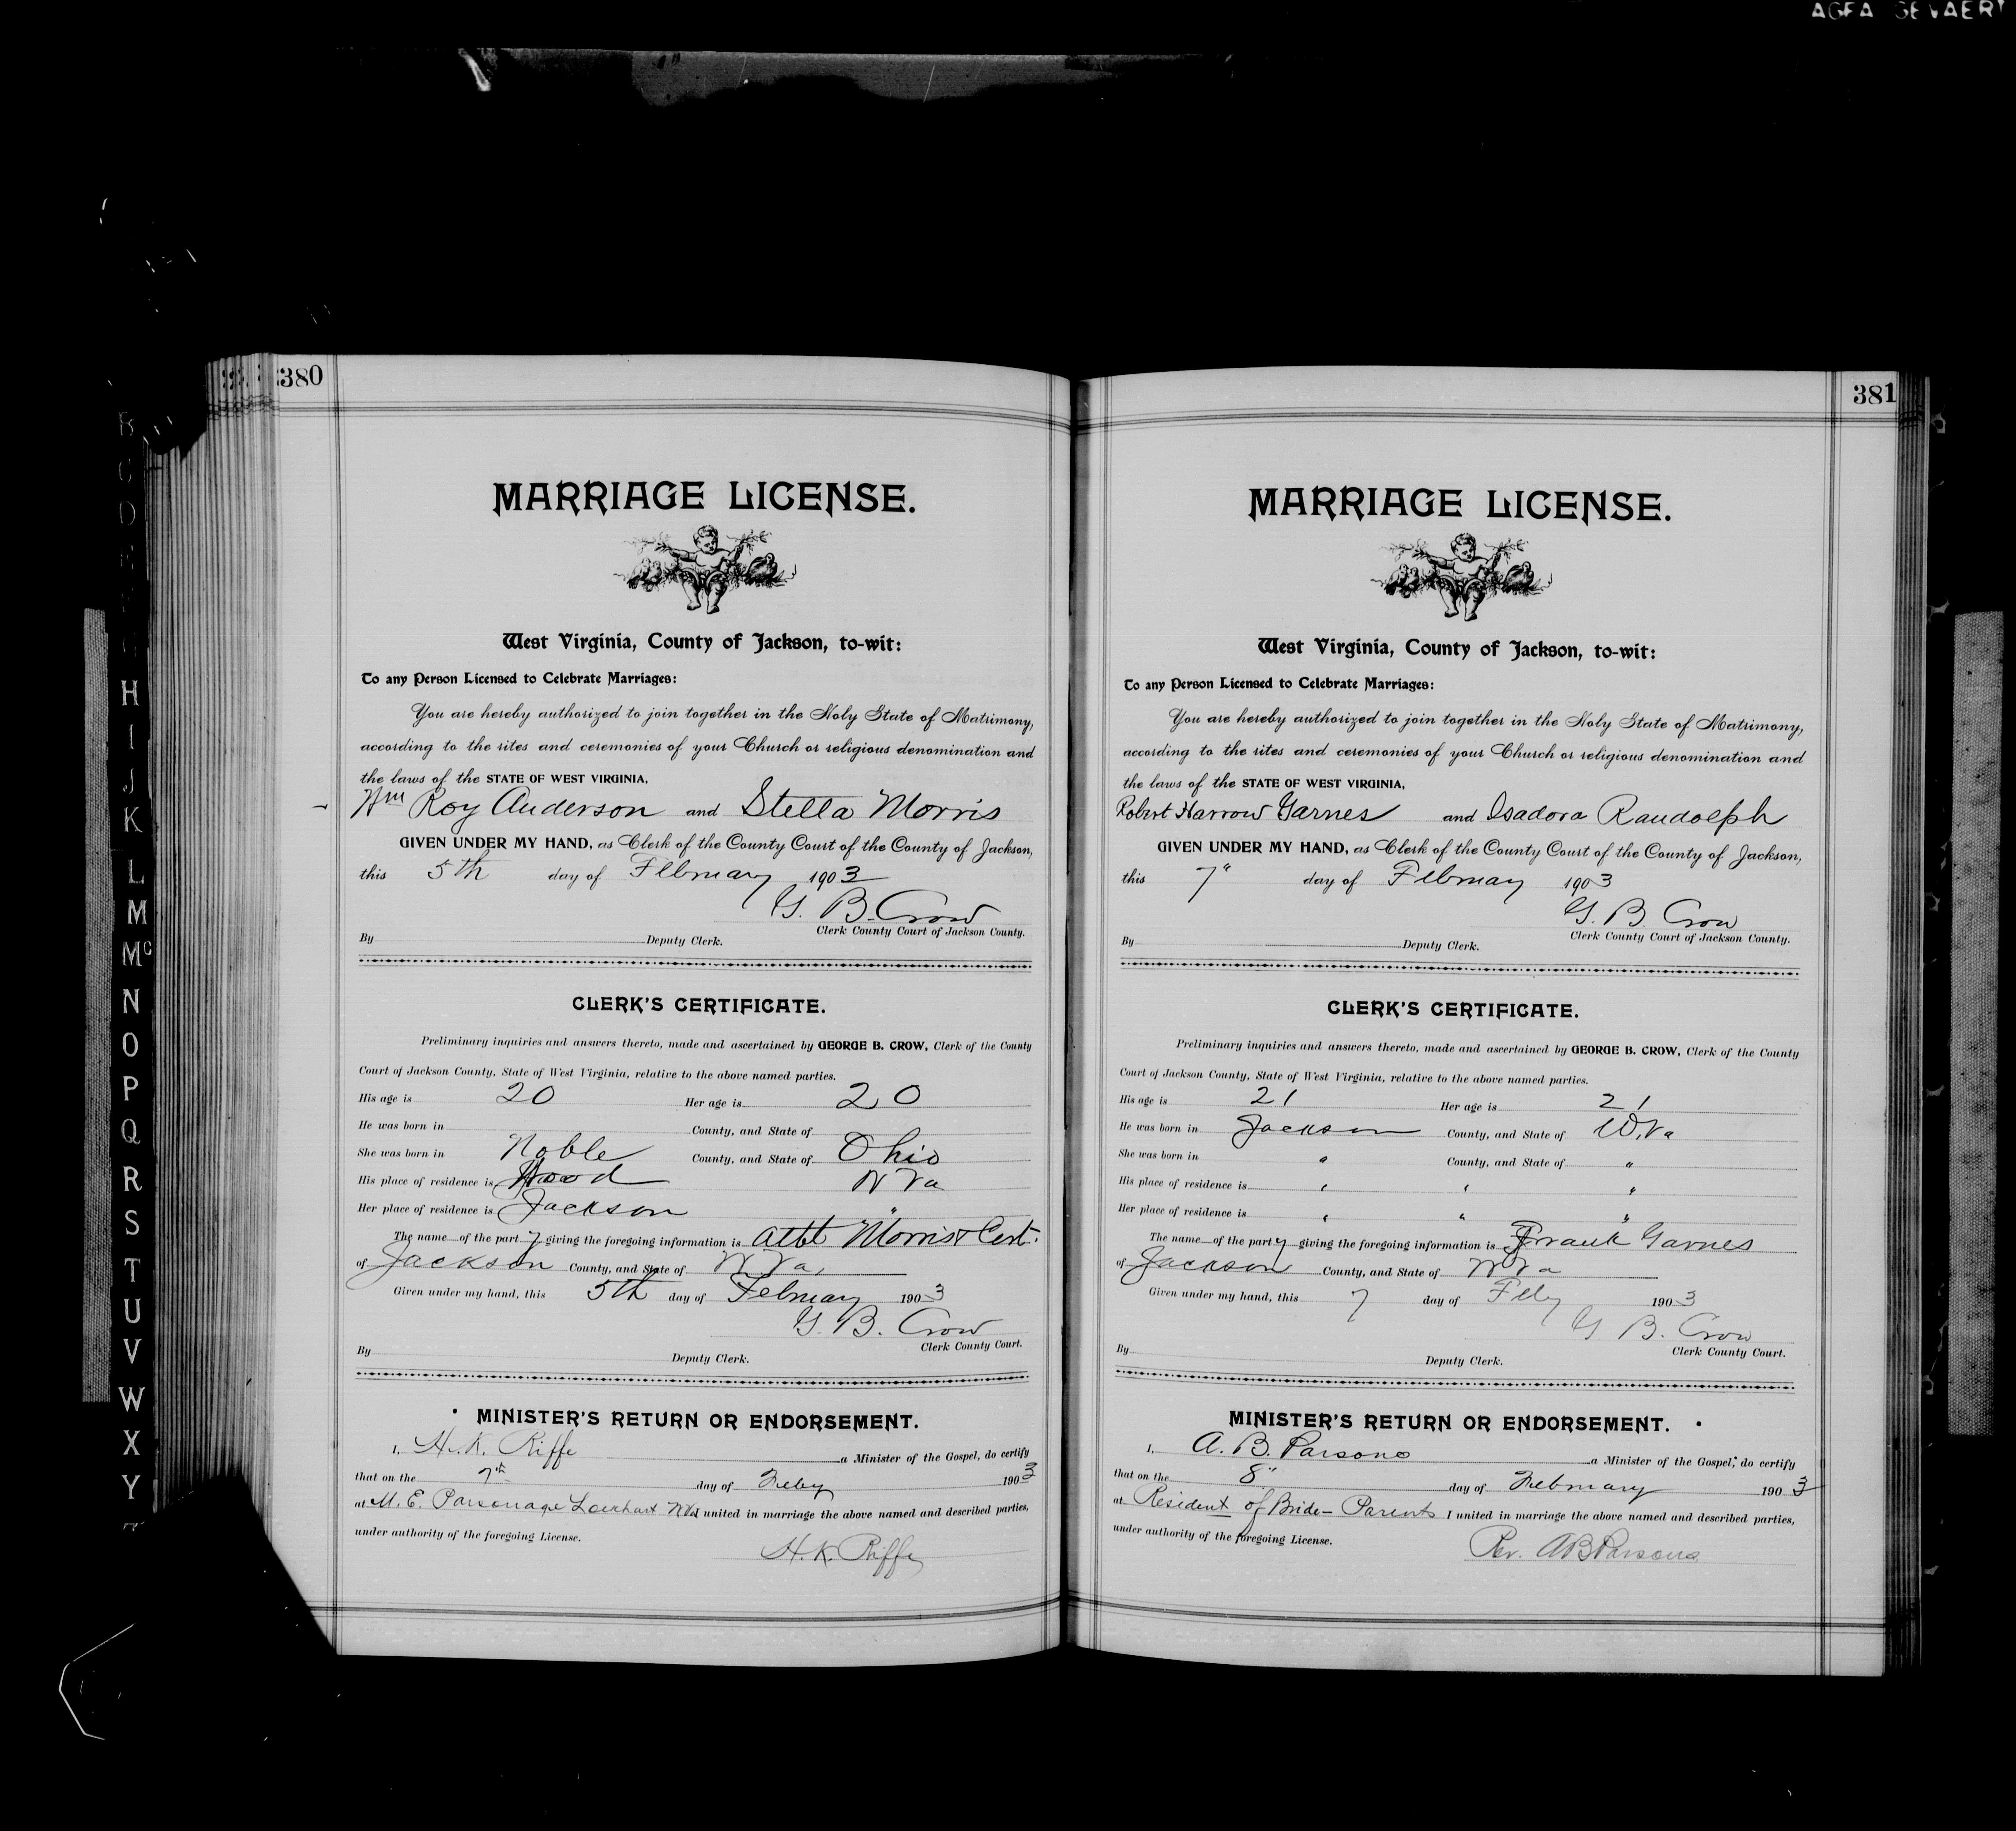 AGFA GEVAERT
B
C
D
E
F
G
H
I
J
K
L
M
Mc
N
O
P
Q
R
S
T
U
V
W
X
Y
380
MARRIAGE LICENSE.
West Virginia, County of Jackson, to-wit:
To any Person Licensed to Celebrate Marriages:
You are hereby authorized to join together in the Holy State of Matrimony,
according to the rites and ceremonies of your Church or religious denomination and
the laws of the STATE OF WEST VIRGINIA,
Wm Roy Anderson and Stella Morris
GIVEN UNDER MY HAND, as Clerk of the County Court of the County of Jackson,
this 5th day of February 1903
G. B. Crow
Clerk County Court of Jackson County.
By Deputy Clerk.
CLERK'S CERTIFICATE.
Preliminary inquiries and answers thereto, made and ascertained by GEORGE B. CROW, Clerk of the County
Court of Jackson County, State of West Virginia, relative to the above named parties.
His age is 20 Her age is 20
He was born in County, and State of
She was born in Noble County, and State of Ohio
His place of residence is Wood W Va
Her place of residence is Jackson "
The name of the party giving the foregoing information is Morris & Cert.
of Jackson County, and State of W Va,
Given under my hand, this 5th day of February 1903
G. B. Crow
Clerk County Court.
By Deputy Clerk.
MINISTER'S RETURN OR ENDORSEMENT.
I, H. K. Riffe a Minister of the Gospel, do certify
that on the 7th day of Feby 1903
at M. E. Parsonage Lockhart WVa I united in marriage the above named and described parties,
under authority of the foregoing License.
H. K. Riffe
381
MARRIAGE LICENSE.
West Virginia, County of Jackson, to-wit:
To any Person Licensed to Celebrate Marriages:
You are hereby authorized to join together in the Holy State of Matrimony,
according to the rites and ceremonies of your Church or religious denomination and
the laws of the STATE OF WEST VIRGINIA,
Robert Harrow Garnes and Isadora Randolph
GIVEN UNDER MY HAND, as Clerk of the County Court of the County of Jackson,
this 7" day of February 1903
G. B. Crow
Clerk County Court of Jackson County.
By Deputy Clerk.
CLERK'S CERTIFICATE.
Preliminary inquiries and answers thereto, made and ascertained by GEORGE B. CROW, Clerk of the County
Court of Jackson County, State of West Virginia, relative to the above named parties.
His age is 21 Her age is 21
He was born in Jackson County, and State of W.Va
She was born in " County, and State of "
His place of residence is " " "
Her place of residence is " " "
The name of the party giving the foregoing information is Frank Garnes
of Jackson County, and State of W Va
Given under my hand, this 7 day of Feby 1903
G B. Crow
Clerk County Court.
By Deputy Clerk.
MINISTER'S RETURN OR ENDORSEMENT.
I, A. B. Parsons a Minister of the Gospel, do certify
that on the 8" day of February 1903
at Resident of Bride- Parents I united in marriage the above named and described parties,
under authority of the foregoing License.
Rev. A B Parsons